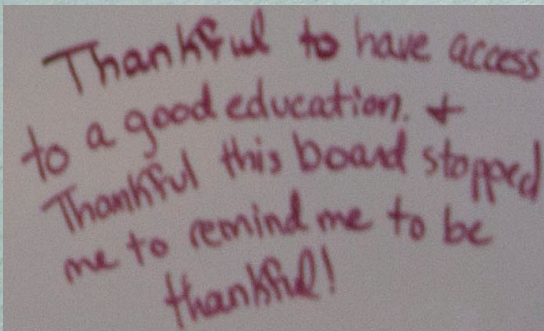 Thankful to have access
to a good education. +
Thankful this board stopped
me to remind me to be
thankful!